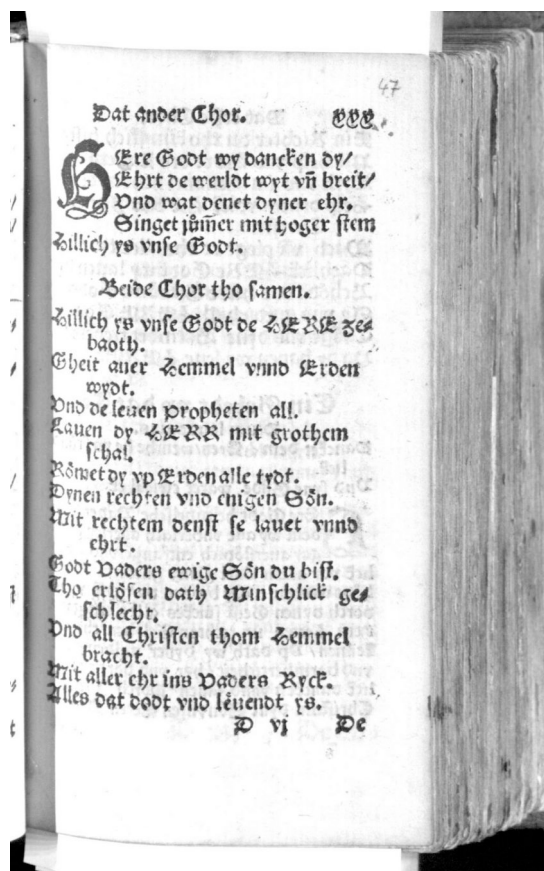 47
Dat ander Chor. XXX
HEre Godt wy dancken dy/
Ehrt de werldt wyt vñ breit/
Vnd wat denet dyner ehr.
Singet jům̃er mit hoger stem
Hillich ys vnse Godt.
Beide Chor tho samen.
Hillich ys vnse Godt de HERE Ze⸗
baoth.
Gheit auer Hemmel vnnd Erden
wydt.
Vnd de leuen propheten all.
Lauen dy HERR mit grothem
schal.
Römet dy vp Erden alle tydt.
Dynen rechten vnd enigen Sön.
Mit rechtem denst se lauet vnnd
ehrt.
Godt Vaders ewige Sön du bist.
Tho erlösen dath Minschlick ge⸗
schlecht.
Vnd all Christen thom Hemmel
bracht.
Mit aller ehr ins Vaders Ryck.
Alles dat dodt vnd leuendt ys.
D vj De